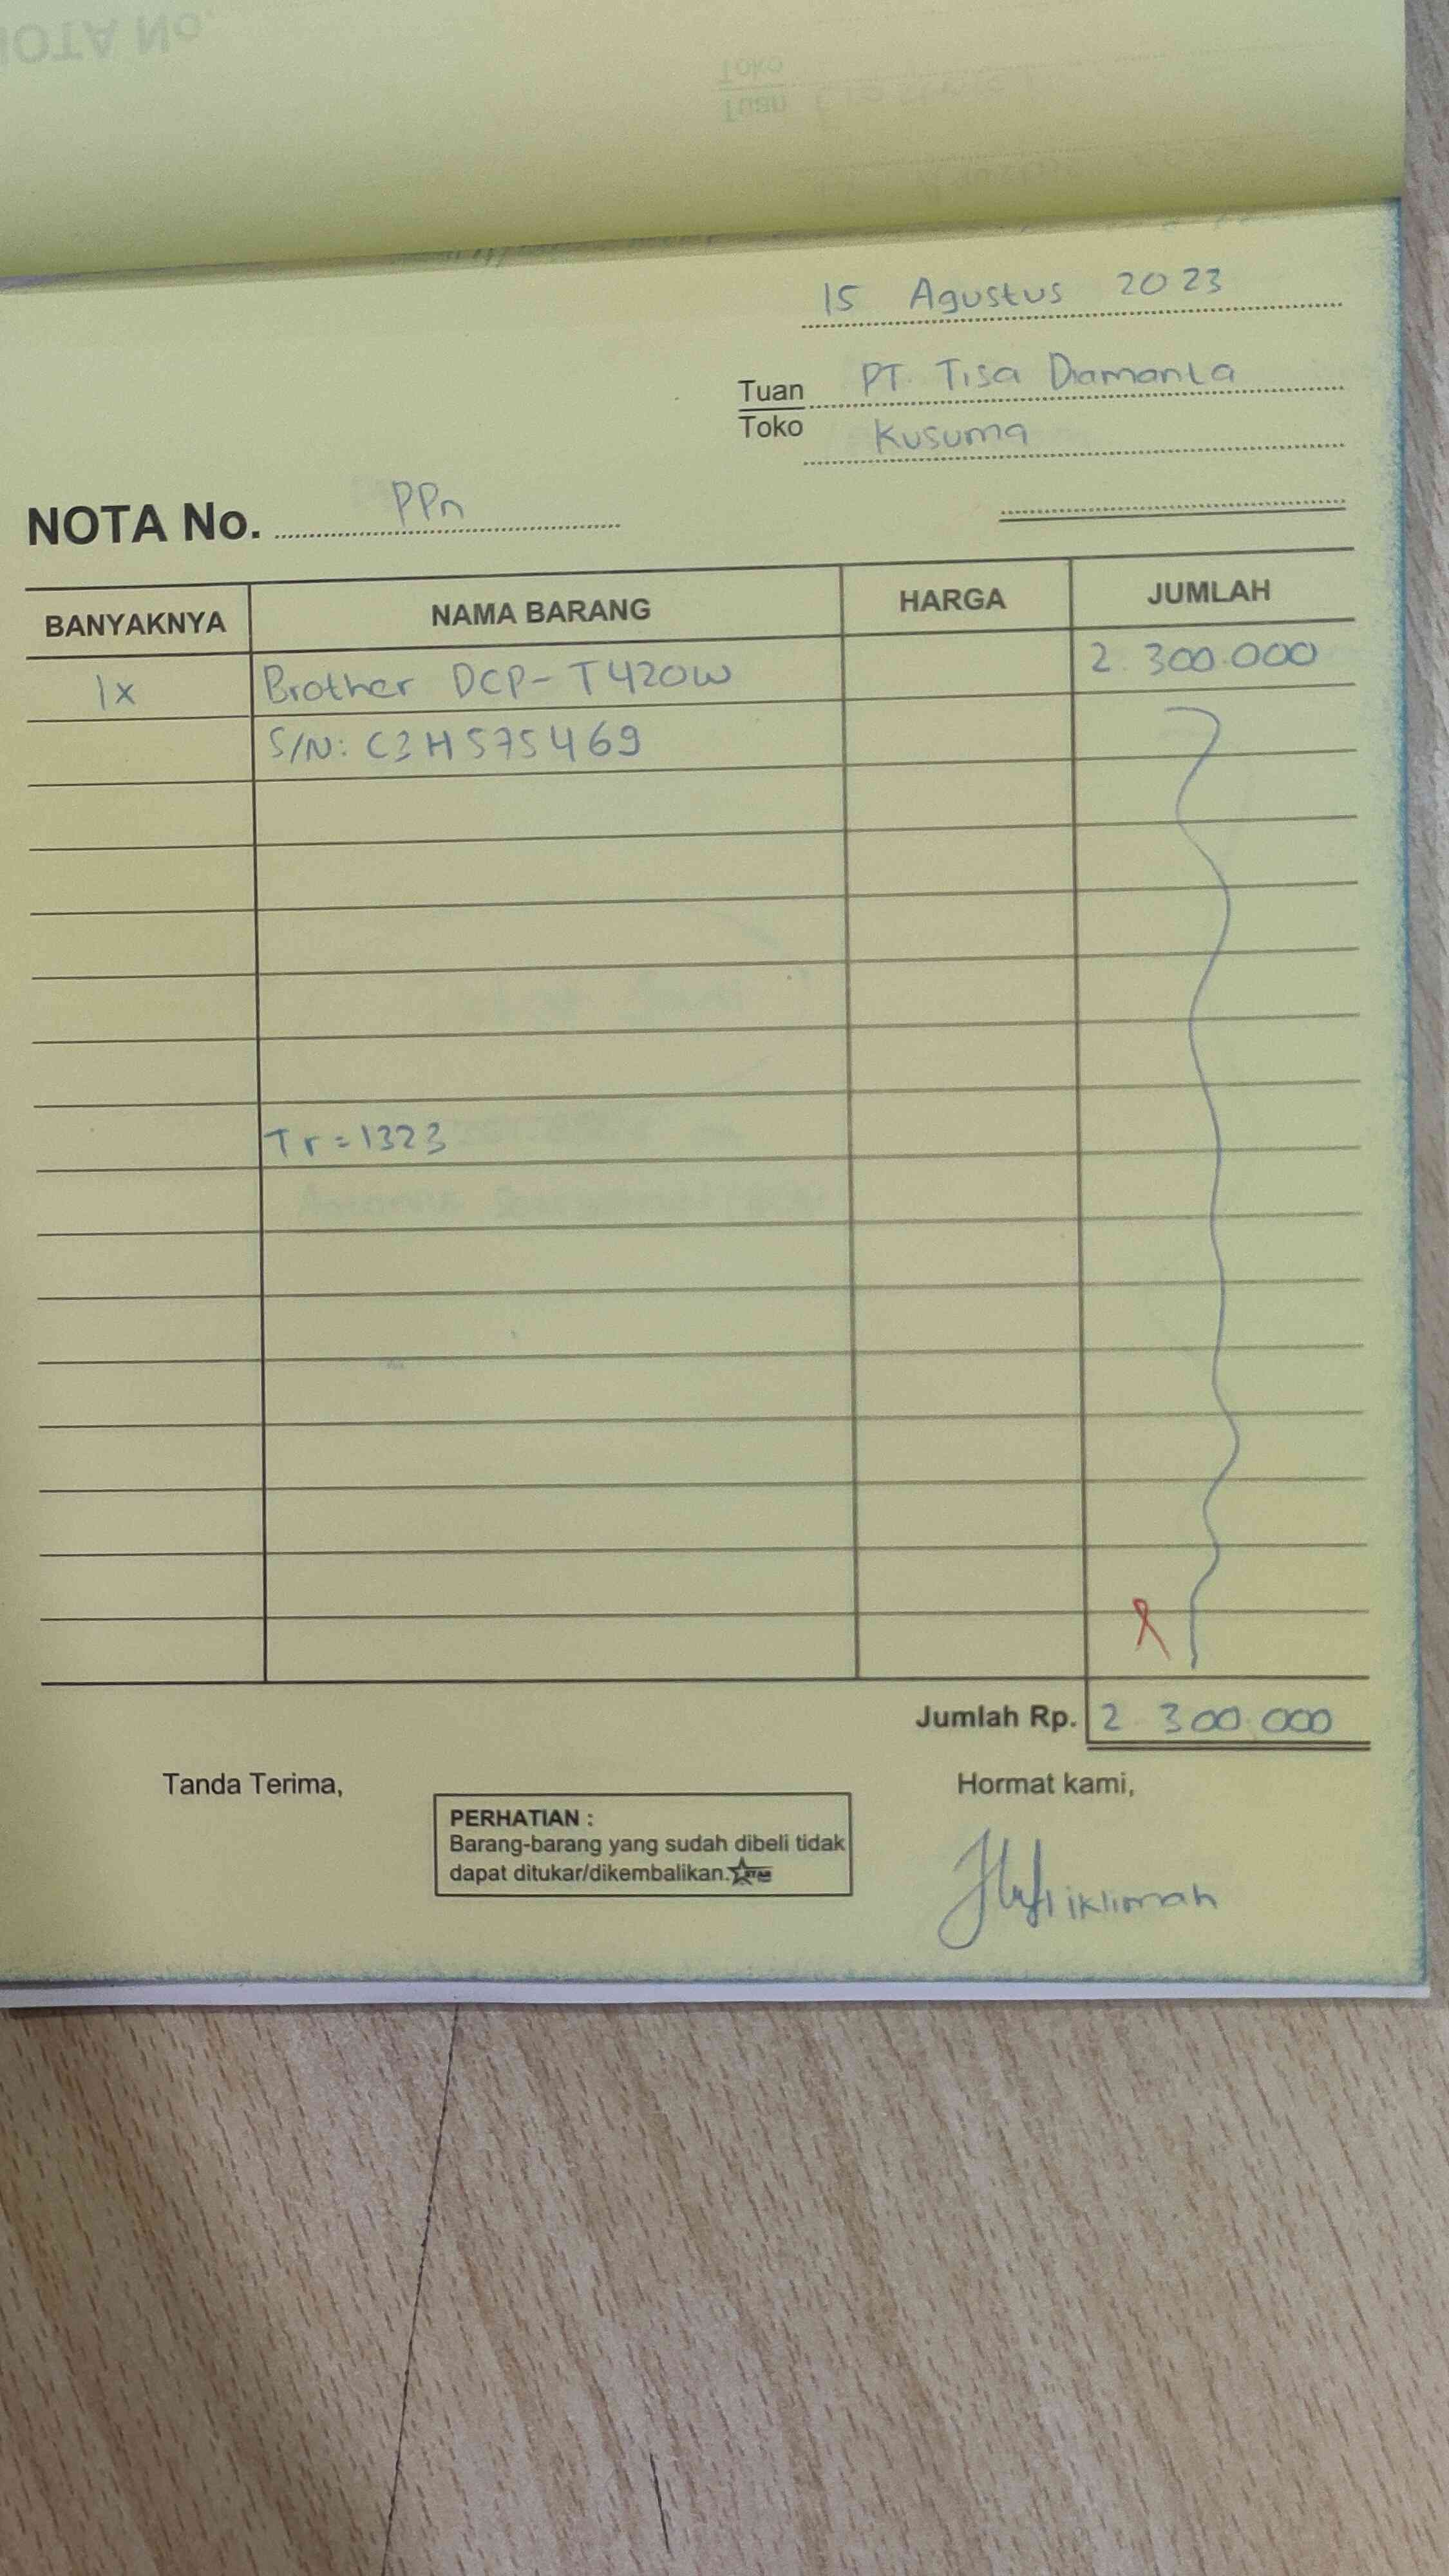 NOTA No.
Toko
Tuan
15 Agustus 2023
Tuan PT. Tisa Diamanta
Toko Kusuma
NOTA No. PPn
BANYAKNYA NAMA BARANG HARGA JUMLAH
1x Brother DCP-T420W 2.300.000
S/N: C3H575469
Tr=1323
Jumlah Rp. 2.300.000
Tanda Terima, Hormat kami,
PERHATIAN :
Barang-barang yang sudah dibeli tidak
dapat ditukar/dikembalikan.
iklimah